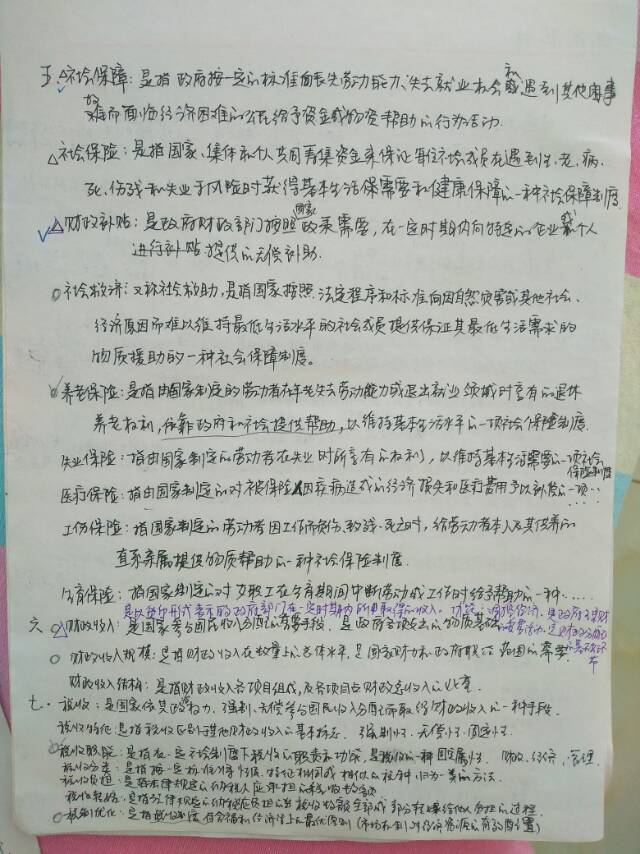 五、社会保障：是指政府按一定的标准向丧失劳动能力、失去就业机会和或遇到其他困事
故难而面临经济困难的公民给予资金或物资帮助的行为活动.
社会保险：是指国家、集体和个人共同筹集资金来保证每位社会成员在遇到生、老、病、
死、伤残和失业等风险时获得基本生活保需要和健康保障的一种社会保障制度.
财政补贴：是政府财政部门按照国家政策需要，在一定时期内向特定的企业或个人
进行补贴提供的无偿补助.
社会救济：又称社会救助，是指国家按照法定程序和标准向因自然灾害或其他社会、
经济原因而难以维持最低生活水平的社会成员提供保证其最低生活需求的
物质援助的一种社会保障制度。
养老保险：是指由国家制定的劳动者在年老失去劳动能力或退出就业领域时享有的退休
养老权利，依靠政府和社会提供帮助，以维持基本生活水平的一项社会保险制度.
失业保险：指由国家制定的劳动者在失业时所享有的权利，以维持基本生活需要的一项社会
保险制度
医疗保险：指由国家制定的对被保险人因疫病造成的经济损失和医疗费用予以补偿的一项……
工伤保险：指国家制定的劳动者因工作而负伤、致残、死亡时，给劳动者本人及其供养的
直系亲属提供物质帮助的一种社会保险制度.
生育保险：指国家制定的对女职工在生育期间中断劳动或工作时给予帮助的一种……
是以货币形式表示的政府部门在一定时期内所取得的收入.
六、财政收入：是国家参与国民收入分配的重要手段，是政府各项支出的物质基础
财政收入规模：是指财政收入在数量上的总体水平，是国家财力和政府职能范围的
财政收入结构：是指财政收入各项目组成，及各项目占财政总收入的比重.
七、税收：是国家依其政治权力，强制、无偿参与国民收入分配而取得财政收入的一种手段.
税收特征：是指税收区别于其他财政收入的基本标志. 强制性、无偿性、固定性.
税收职能：是指在一定社会制度下税收的职责和功能，是税收的一种固定属性. 财政、经济、管理.
税收分类：是指按一定标准将性质、特征相同或相似的税种归为一类的方法.
税收负担：是指法律规定的纳税人应承担的税收数额
税收转嫁：是指法律规定的纳税人应负担的税收数额全部或部分转嫁给他人负担的过程.
税制优化：是指税收制度符合福利经济学上的最优原则（市场机制对经济资源的有效配置）